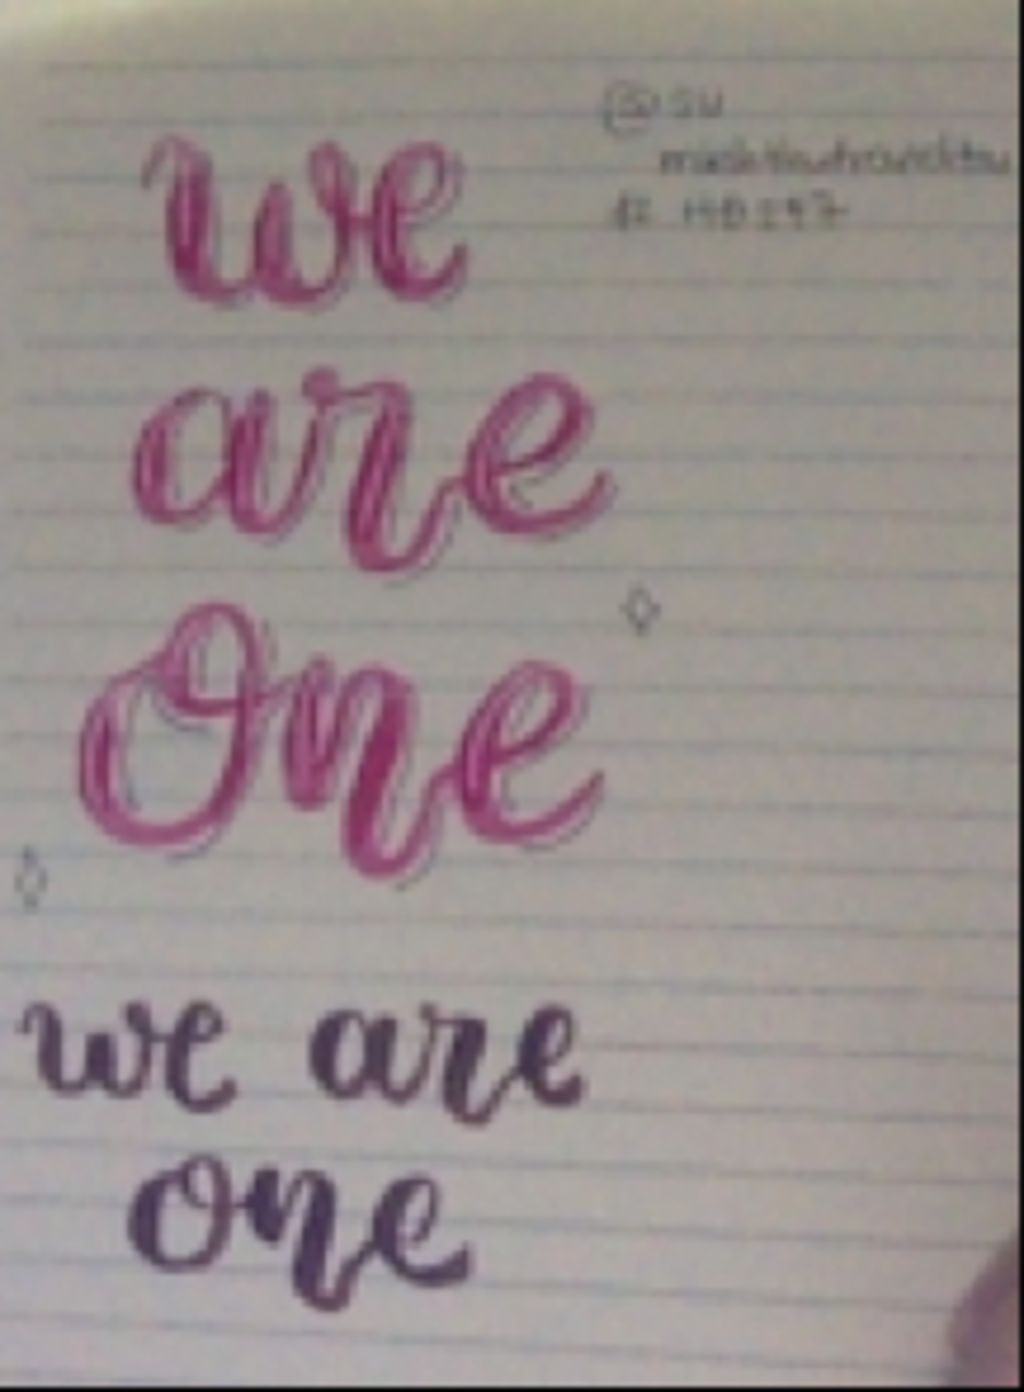 we
are
one
we are
one